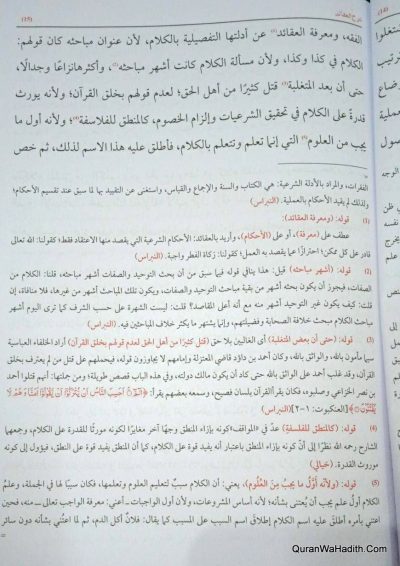 (15)
شرح العقائد
الفقه، ومعرفة العقائد(1) عن أدلتها التفصيلية بالكلام، لأن عنوان مباحثه كان قولهم:
الكلام في كذا وكذا، ولأن مسألة الكلام كانت أشهر مباحثه(2)، وأكثرها نزاعًا وجدالًا،
حتى أن بعد المتغلبة(3) قتل كثيرًا من أهل الحق؛ لعدم قولهم بخلق القرآن؛ ولأنه يورث
قدرةً على الكلام في تحقيق الشرعيات وإلزام الخصوم، كالمنطق للفلاسفة(4)؛ ولأنه أول ما
يجب من العلوم(5) التي إنما تعلم وتتعلم بالكلام، فأطلق عليه هذا الاسم لذلك، ثم خص
والمراد بالأدلة الشرعية: هي الكتاب والسنة والإجماع والقياس، واستغنى عن التقييد بها لما سبق عند تقسيم الأحكام؛
ولذلك لم يقيد الأحكام بالعملية. (النبراس)
(1) قوله: (ومعرفة العقائد):
عطف على (معرفة)، أو على (الأحكام)، وأريد بالعقائد: الأحكام الشرعية التي يقصد منها الاعتقاد فقط؛ كقولنا: الله تعالى
قادر على كل ممكن؛ احترازًا عما يقصد به العمل؛ كقولنا: زكاة الفطر واجبة. (النبراس)
(2) قوله: (أشهر مباحثه) قيل: هذا ينافي قوله فيما سبق من أن بحث التوحيد والصفات أشهر مباحثه، قلنا: الكلام من
الصفات، فيجوز أن يكون بحثه أشهر من بقية مباحث التوحيد والصفات، ويكون تلك المباحث أشهر من غيرها، فلا منافاة، إن
قلت: كيف يكون غير التوحيد أشهر منه مع أنه أعلى المقاصد؟ قلت: ليست الشهرة على حسب الشرف كما ترى اليوم أشهر
مباحث الكلام مبحث خلافة الصحابة وفضيلتهم، وإنما يشتهر ما يكثر خلاف المباحثين فيه. (النبراس)
(3) قوله: (حتى أن بعض المتغلبة) أي الغالبين بلا حق (قتل كثيرًا من أهل الحق لعدم قولهم بخلق القرآن) أراد الخلفاء العباسية
سيما مأمون بالله، والواثق بالله، وكان أحمد بن داؤد قاضي المعتزلة وإمامهم لا يجاوزون قوله، فيحملهم على قتل من لم يعترف بخلق
القرآن، وقد غلب أحمد على الواثق بالله حتى كاد أن يكون مالك دولته، وفي هذه الباب قصص طويلة؛ ومن جملتها: أنهم قتلوا أحمد
بن نصر الخزاعي وصلبوه، فكان يقرأ القرآن بلسان فصيح، وسمعه بعضهم يقرأ: ﴿الٓمٓ ۝ أَحَسِبَ النَّاسُ أَن يُتْرَكُوا أَن يَقُولُوا آمَنَّا وَهُمْ لَا
يُفْتَنُونَ ۝﴾ [العنكبوت: ١-٢] (النبراس)
(4) قوله: (كالمنطق للفلسفة) عدّ في «المواقف» كونه بإزاء المنطق وجهًا آخر مغايرًا لكونه مورثًا للقدرة على الكلام، وجمعهما
الشارح رحمه الله نظرًا إلى أنّ كونه بإزاء المنطق باعتبار أنه يفيد قوة على الكلام، كما أن المنطق يفيد قوة على النطق، فيؤول إلى كونه
مورث القدرة. (خيالي)
(5) قوله: (ولأنه أوّل ما يجب من العلوم)، يعني: أن الكلام سببٌ لتعليم العلوم وتعلمها، فكان سببًا لها في الجملة، وعلم
الكلام أول علم يجب أن يُعتنى بشأنه؛ لأنه أساس المشروعات، ولأن أول الواجبات - أعني: معرفة الواجب تعالى - منه، فحين
اعتنى بأمره أطلق عليه اسم الكلام إطلاق اسم السبب على المسبب كما يقال: فلانٌ أكل الدم، ثم لما اعتني بشأنه دون سائر
QuranWaHadith.Com